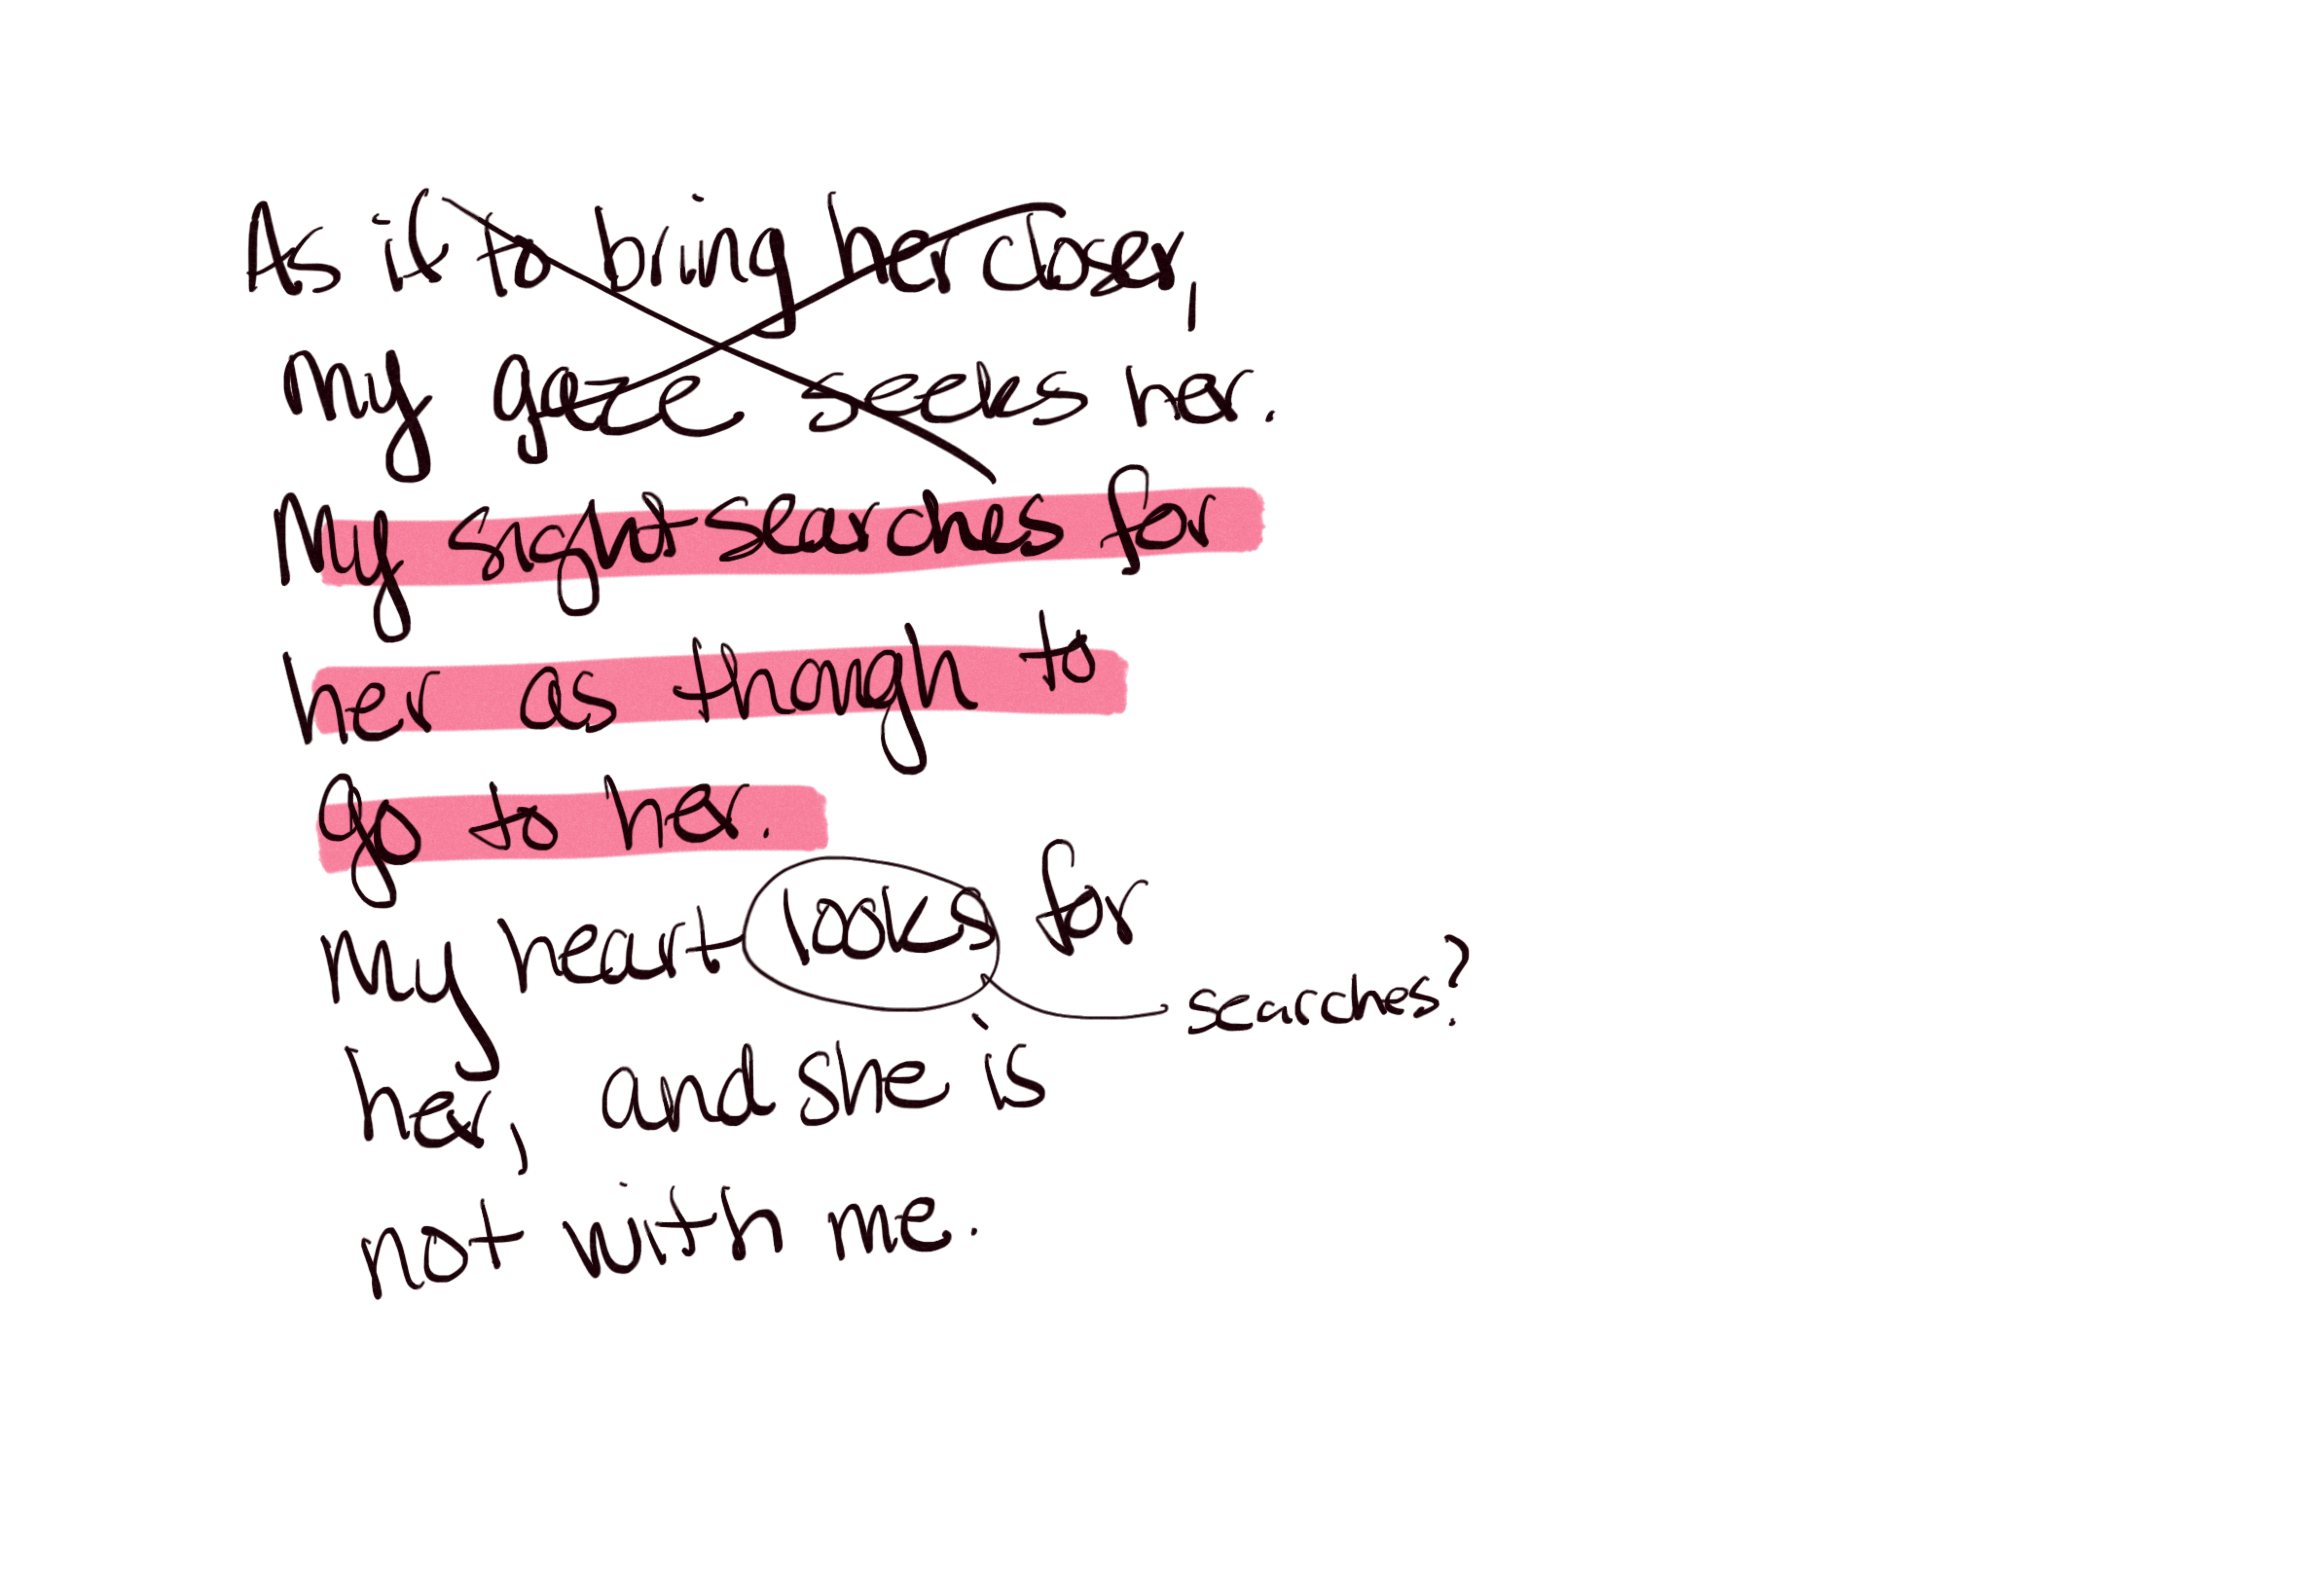 As if to bring her closer,
my gaze seeks her.
My sight searches for
her as though to
go to her.
My heart looks for
searches?
her, and she is
not with me.